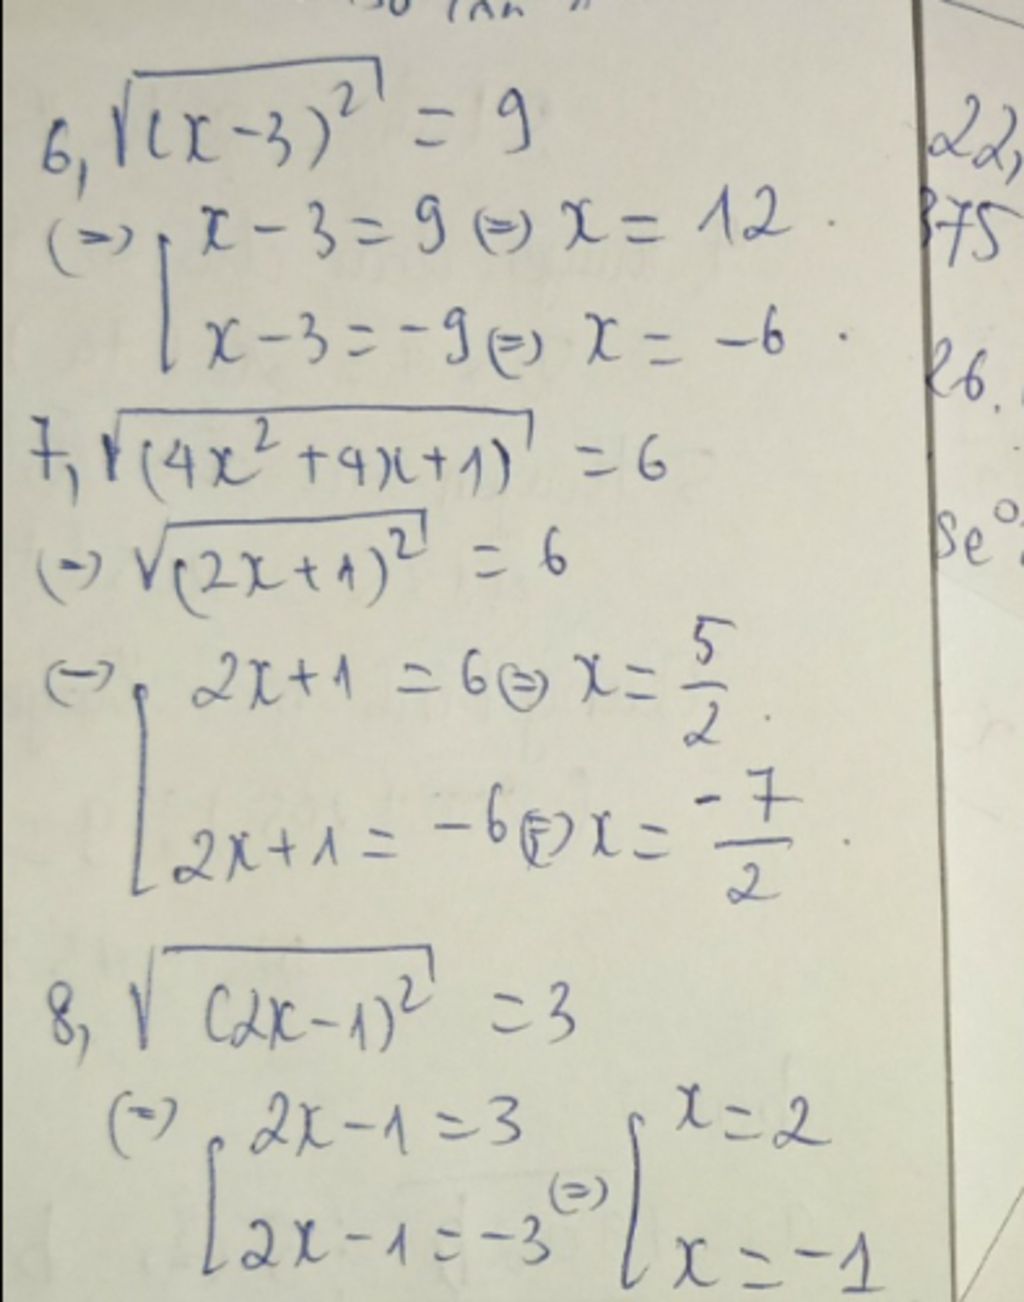 6, √(x-3)² = 9
(=) [ x - 3 = 9 (=) x = 12 .
x - 3 = -9 (=) x = -6 .
7, √(4x² + 4x + 1) = 6
(=) √(2x+1)² = 6
(=) [ 2x+1 = 6 (=) x = 5/2 .
2x+1 = -6 (=) x = -7/2 .
8, √(2x-1)² = 3
(=) [ 2x-1 = 3 (=) [ x = 2
2x-1 = -3 x = -1
22,
375
26.
Se